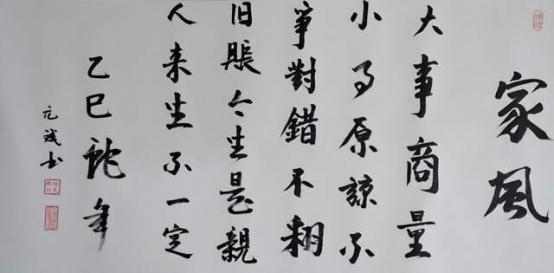 家風
大事商量
小事原諒不
爭對錯不翻
旧賬今生是親
人来生不一定
乙巳蛇年
元 书